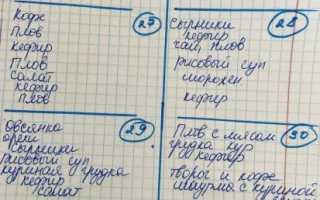 27
Кофе
Плов
Кефир
Плов
Салат
кефир
плов
28
Сырники
кефир
чай, плов
рисовый суп
кефир
29
Овсянка
орехи
сырники
рисовый суп
куриная грудка
кефир
салат
30
Плов с мясом
грудка кур
кефир
творог и кофе
шаурма с куриной